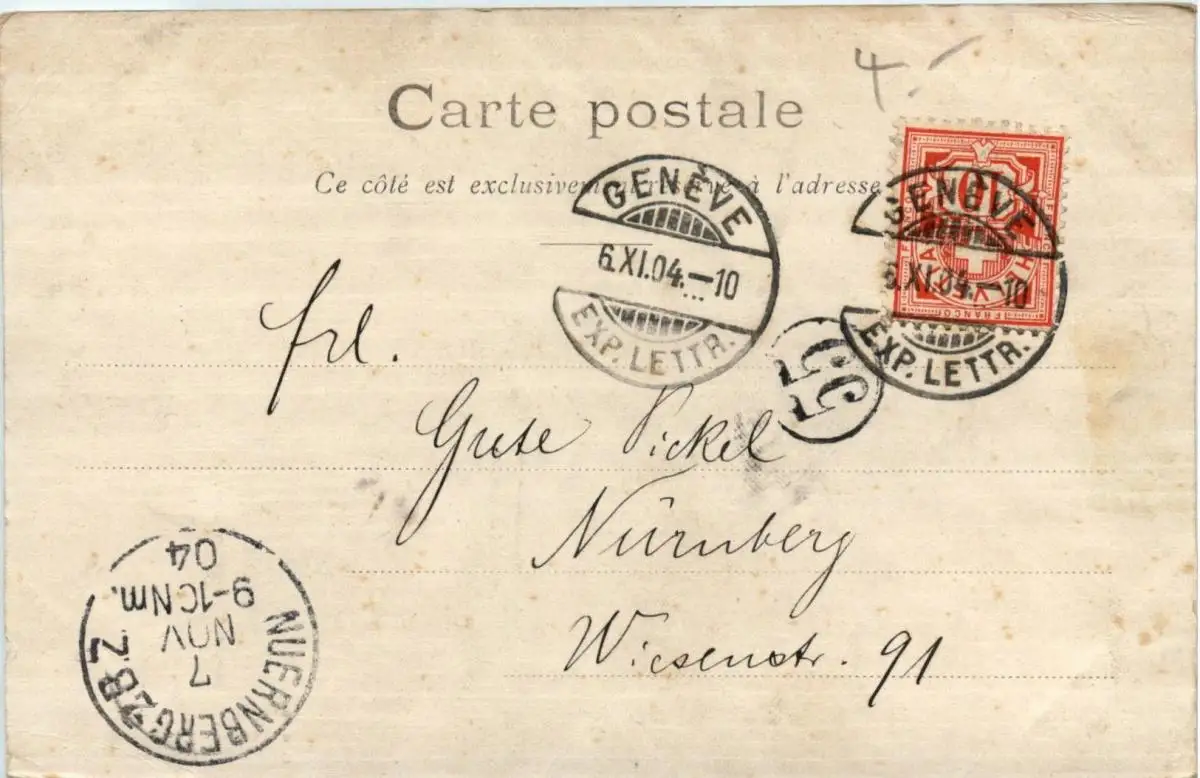 4.-
Carte postale
Ce côté est exclusivement réservé à l'adresse
10
HELVETIA
FRANCO
GENÈVE
6.XI.04.–10
EXP. LETTR.
GENÈVE
6.XI.04.–10
EXP. LETTR.
55
frl.
Gute Pickel
Nürnberg
Wiesenstr. 91
NUERNBERG 2 B Z
7
NOV
9-10 Nm.
04